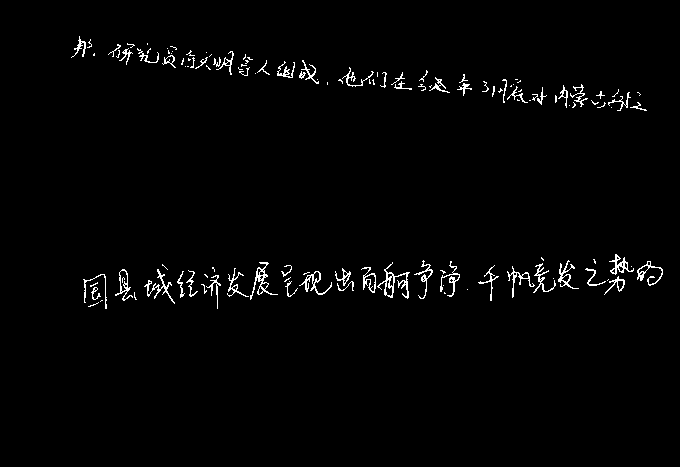 邦、研究员何文明等人组成,他们在今年3月底对内蒙古
国县域经济发展呈现出百舸争净,千帆竞发之势的